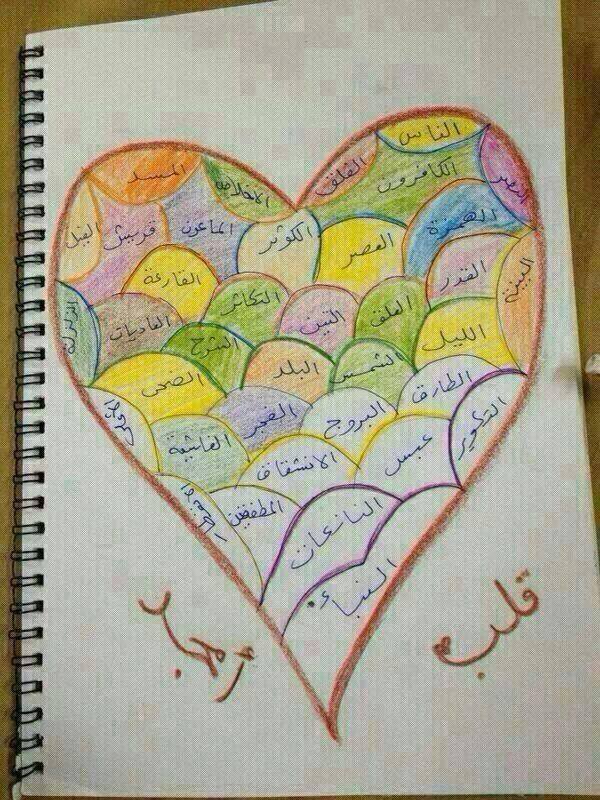 الناس
الفلق
الكافرون
النصر
المسد
الاخلاص
الهمزة
العصر
الكوثر
الماعون
قريش
الفيل
البينة
القدر
القارعة
التكاثر
العلق
التين
العاديات
الزلزلة
الليل
الشمس
البلد
الشرح
الضحى
الطارق
البروج
الفجر
الغاشية
التكوير
عبس
الانشقاق
المطففين
النازعات
النباء
قلب